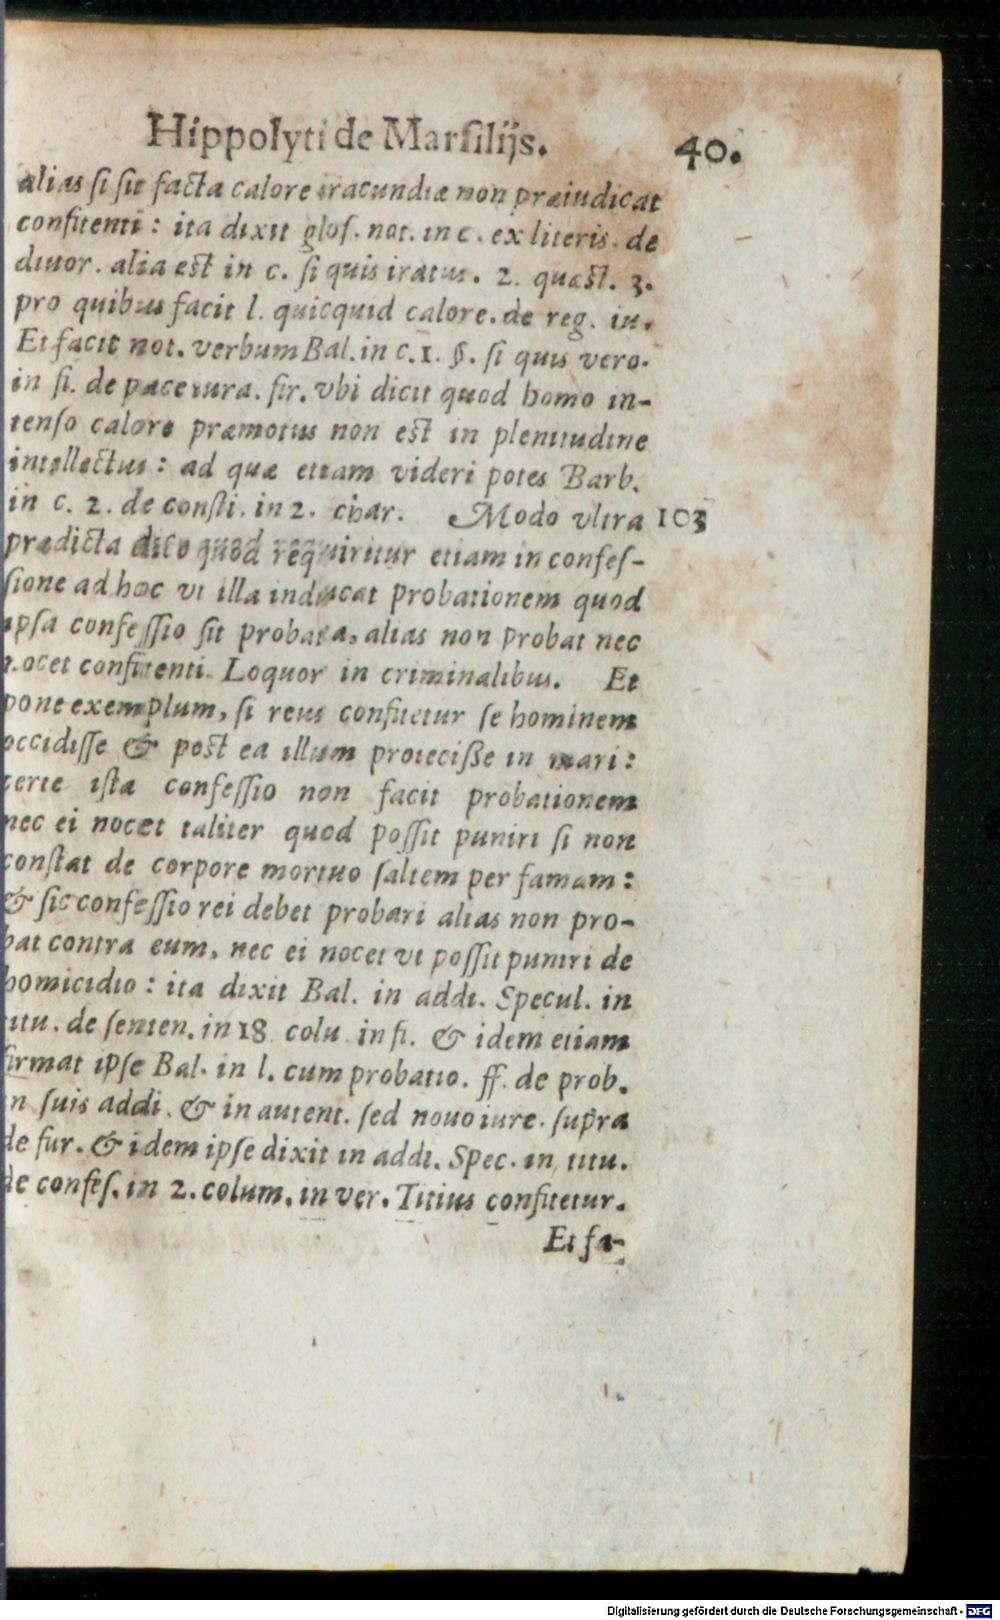 Hippolyti de Marſilijs. 40.
alias ſi ſit facta calore iracundiæ non præiudicat
confitenti: ita dixit gloſ. not. in c. ex literis. de
diuor. alia eſt in c. ſi quis iratus. 2. quæſt. 3.
pro quibus facit l. quicquid calore. de reg. iu.
Et facit not. verbum Bal. in c. 1. §. ſi quis vero.
in fi. de pace iura. fir. vbi dicit quod homo in-
tenſo calore præmotus non eſt in plenitudine
intellectus: ad quæ etiam videri potes Barb.
in c. 2. de conſti. in 2. char. Modo vltra 103
prædicta dico quod requiritur etiam in confeſ-
ſione ad hoc vt illa inducat probationem quod
ipſa confeſſio ſit probata, alias non probat nec
nocet confitenti. Loquor in criminalibus. Et
pone exemplum, ſi reus confitetur ſe hominem
occidiſſe & poſt ea illum proieciſſe in mari:
certe iſta confeſſio non facit probationem
nec ei nocet taliter quod poſſit puniri ſi non
conſtat de corpore mortuo ſaltem per famam:
& ſic confeſſio rei debet probari alias non pro-
bat contra eum, nec ei nocet vt poſſit puniri de
homicidio: ita dixit Bal. in addi. Specul. in
titu. de ſenten. in 18. colu. in fi. & idem etiam
firmat ipſe Bal. in l. cum probatio. ff. de prob.
in ſuis addi. & in autent. ſed nouo iure. ſupra
de fur. & idem ipſe dixit in addi. Spec. in titu.
de confeſ. in 2. colum. in ver. Titius confitetur.
Et fa-
Digitalisierung gefördert durch die Deutsche Forschungsgemeinschaft - DFG